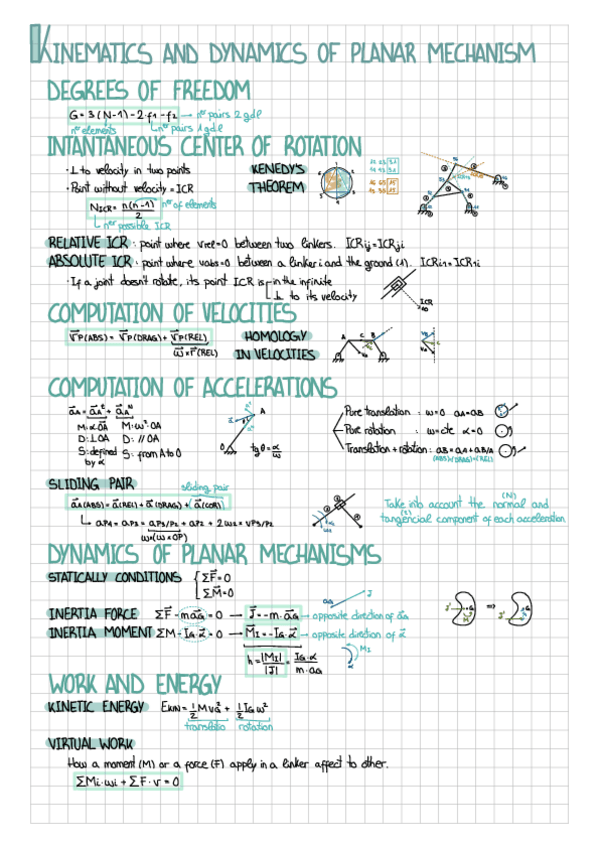 KINEMATICS AND DYNAMICS OF PLANAR MECHANISM
DEGREES OF FREEDOM
G = 3(N-1)-2·f1-f2 → nº pairs 2 gdl
nº elements nº pairs 1 gdl
INTANTANEOUS CENTER OF ROTATION
· ⊥ to velocity in two points
· Point without velocity = ICR
KENEDY'S
THEOREM
N_ICR = n(n-1)/2 nº of elements
nº possible ICR
RELATIVE ICR : point where vrel=0 between two linkers. ICRij = ICRji
ABSOLUTE ICR : point where vabs=0 between a linker i and the ground (1). ICRi1 = ICR1i
· If a joint doesn't rotate, its point ICR is in the infinite
⊥ to its velocity
ICR
∞
COMPUTATION OF VELOCITIES
VP(ABS) = VP(DRAG) + VP(REL)
ω×P(REL)
HOMOLOGY
IN VELOCITIES
A C B
COMPUTATION OF ACCELERATIONS
aA = aA^t + aA^N
M: α·OA M: ω²·OA
D: ⊥OA D: // OA
S: defined by α S: from A to O
A
O
tgθ = α/ω
Pure translation : ω=0 aA=aB
Pure rotation : ω=cte α=0
Translation + rotation : aB = aA + aB/A
(ABS)=(DRAG)+(REL)
SLIDING PAIR sliding pair
aA(ABS) = a(REL) + a(DRAG) + a(COR)
aP4 = aP3 = aP3/P2 + aP2 + 2ω2 × VP3/P2
ω×(ω×OP)
Take into account the normal (N) and
tangencial (t) component of each acceleration
DYNAMICS OF PLANAR MECHANISMS
STATICALLY CONDITIONS { ΣF = 0
ΣM = 0
INERTIA FORCE ΣF - m·aG = 0 → J = -m·aG → opposite direction of aG
INERTIA MOMENT ΣM - IG·α = 0 → MI = -IG·α → opposite direction of α
h = |MI|/|J| = IG·α/m·aG
aG J
MI
α
WORK AND ENERGY
KINETIC ENERGY EKIN = 1/2 M VG² + 1/2 IG ω²
translatio rotation
VIRTUAL WORK
How a moment (M) or a force (F) apply in a linker affect to other.
ΣMi·ωi + ΣF·v = 0